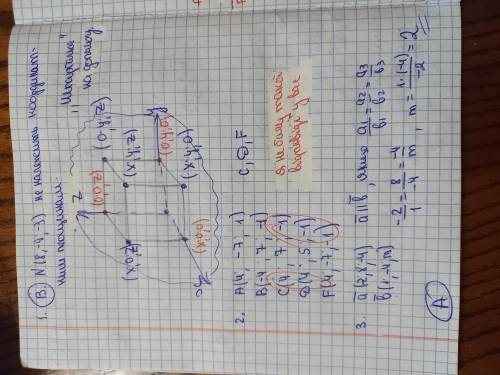 1. (В) N(8, -4, -3) не належить координат-
ним площинам.
"Шпаргалка"
на допомогу
z
(0; 0; z)
(0; y; z)
(x; 0; z)
(x; y; z)
(0; y; 0)
y
(x; 0; 0)
(x; y; 0)
x
2. A(4; -7; 1)
B(-4; 7; 1)
C(4; 7; -1)
D(4; 5; -1)
F(4; -7; -1)
C, D, F
Я не бачу такої
відповіді у вас
3. a(2, 8, -4)
b(1, -4, m)
a||b, якщо a1/b1 = a2/b2 = a3/b3
-2/1 = 8/-4 = -4/m, m = 1·(-4)/-2 = 2
(A)